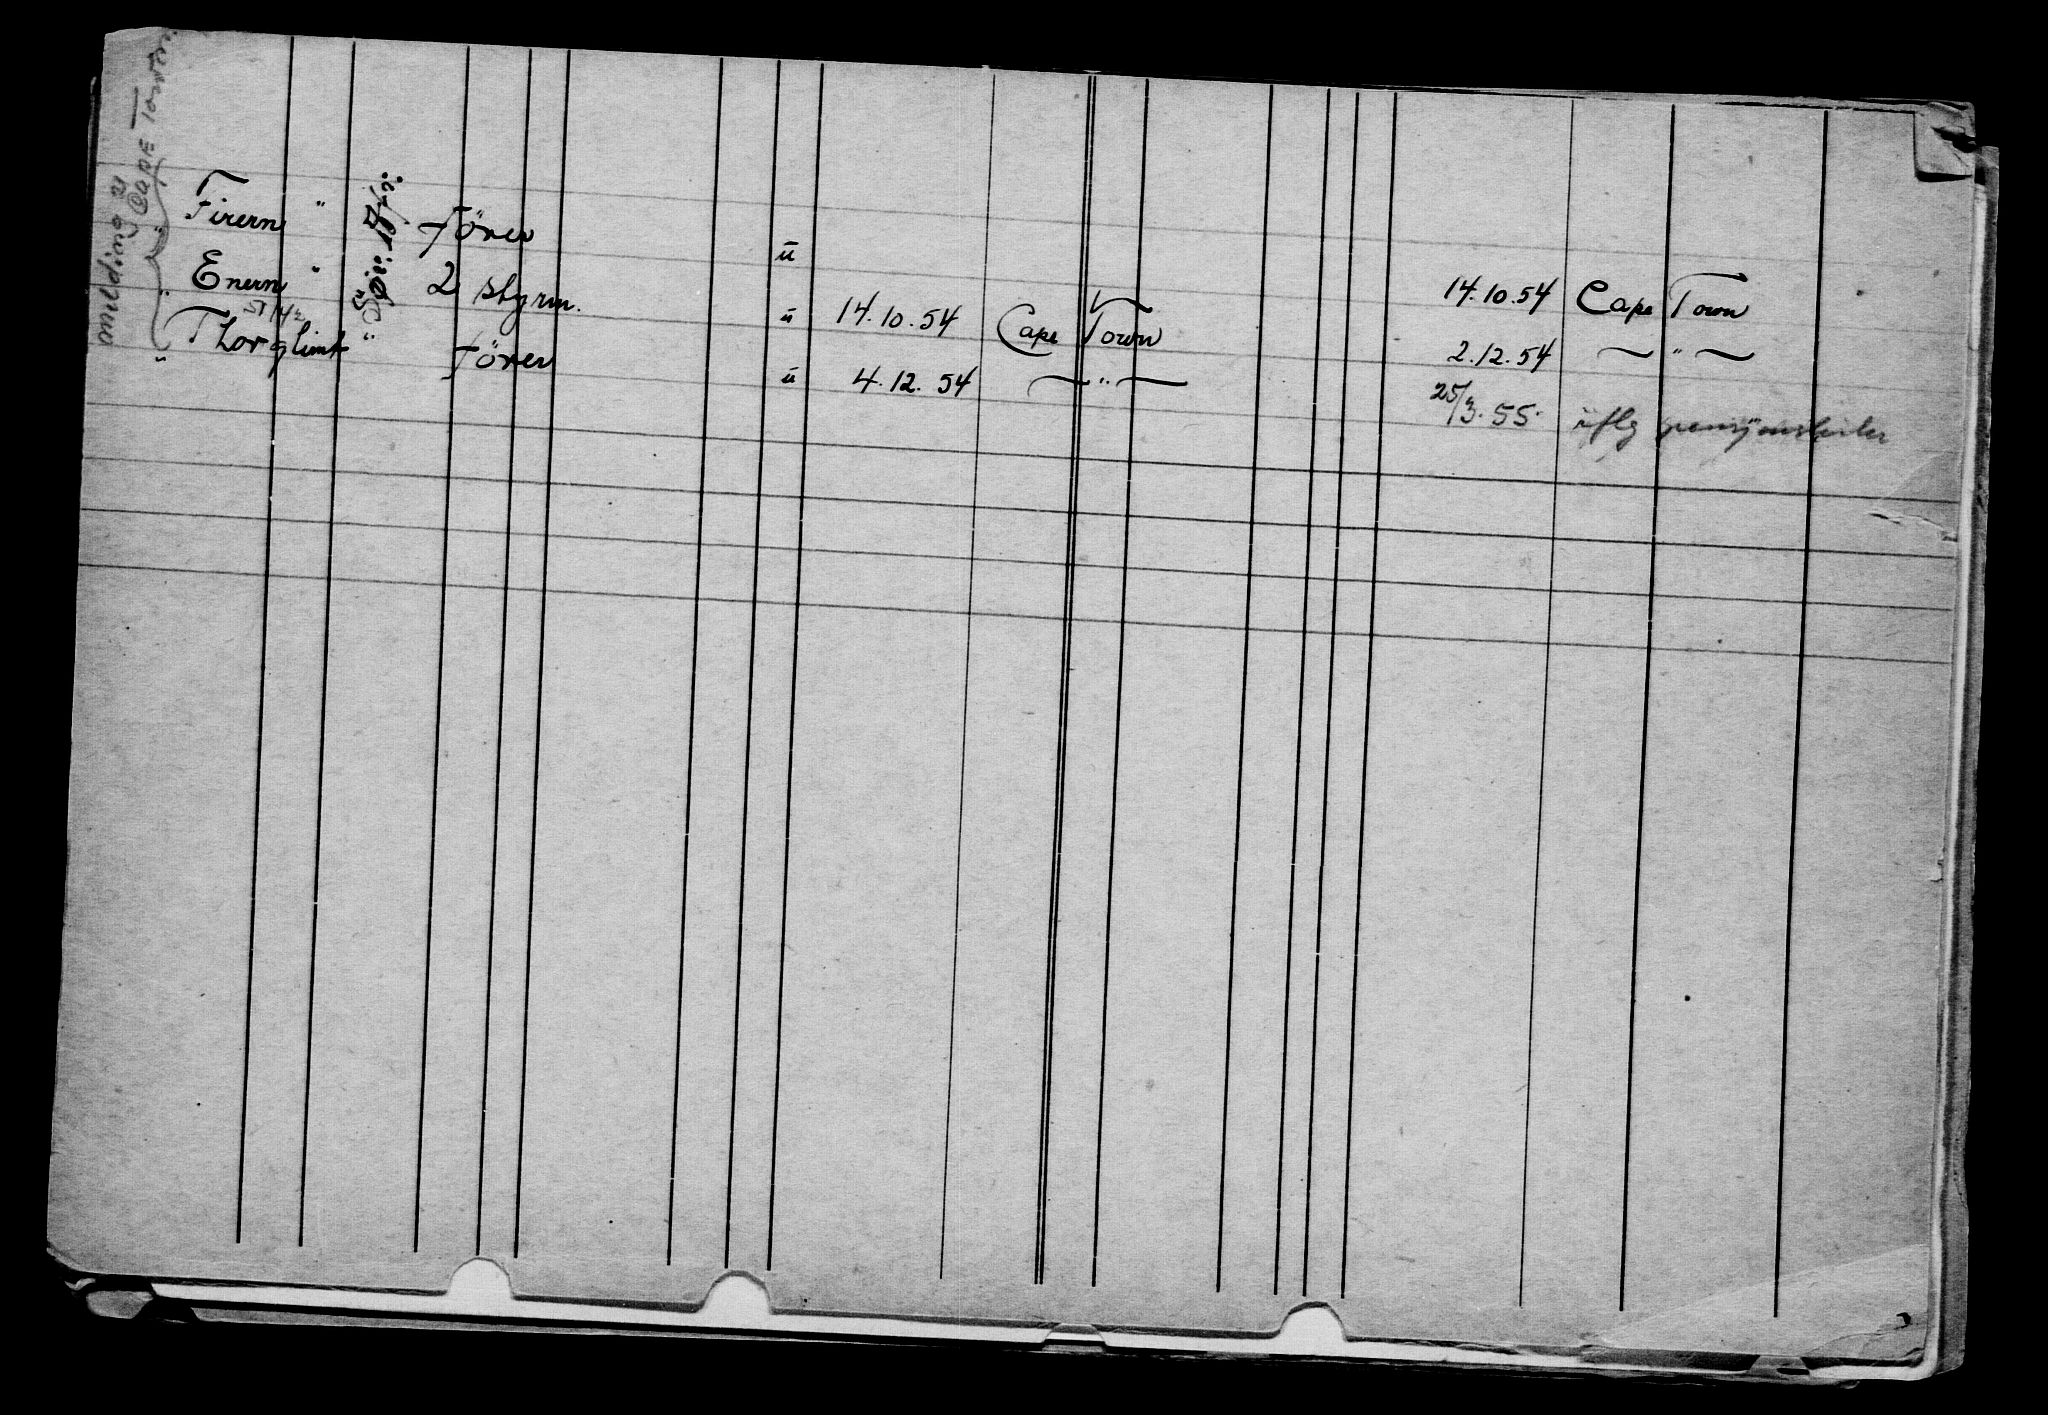 melding 21 Cape Town
Firern " Förer ü 14.10.54 Cape Town
" Enern " 2 styrm. ü 14.10.54 Cape Town 2.12.54 — " —
" Thorglimt " förer ü 4.12.54 — " — 25/3.55 iflg